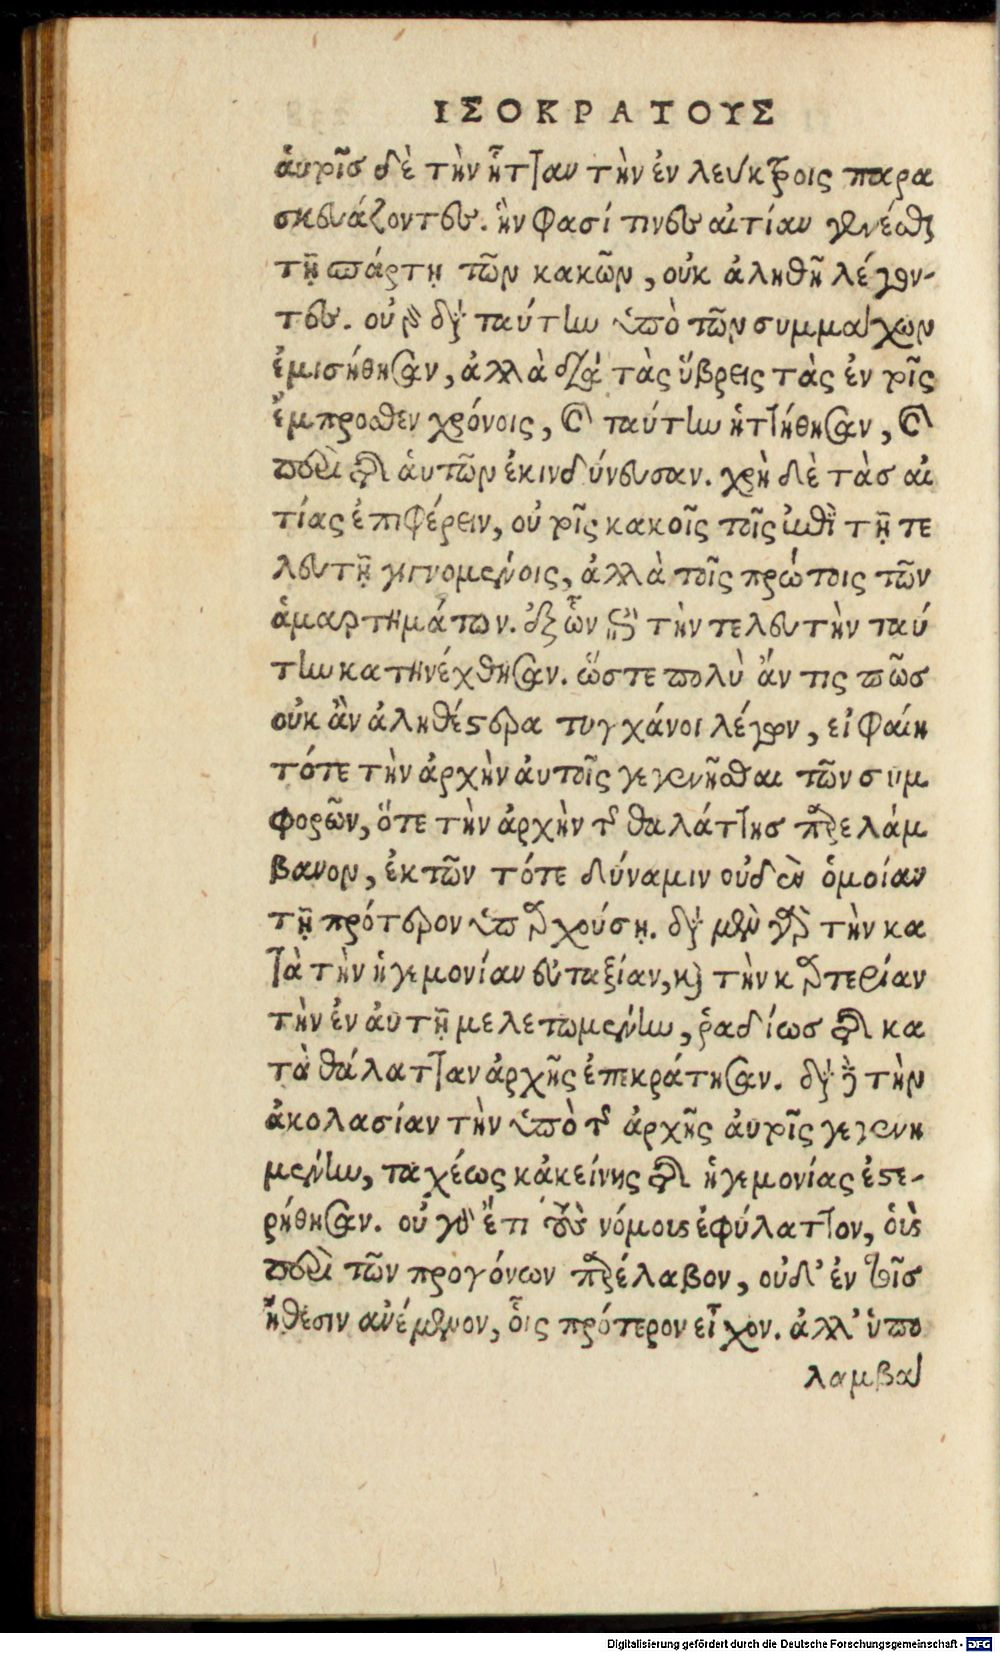 ΙΣΟΚΡΑΤΟΥΣ
ἁυτοῖσ δὲ τὴν ἧτταν τὴν ἐν λεύκτροις παρα
σκευάζοντες. ἥν φασί τινες αἰτίαν γενέσθαι
τῇ σπάρτῃ τῶν κακῶν, οὐκ ἀληθῆ λέγον-
τες. οὐ γὰρ διὰ ταύτην ὑπὸ τῶν συμμάχων
ἐμισήθησαν, ἀλλὰ διὰ τὰς ὕβρεις τὰς ἐν τοῖς
ἔμπροσθεν χρόνοις, καὶ ταύτην ἡττήθησαν, καὶ
περὶ τῆς ἁυτῶν ἐκινδύνευσαν. χρὴ δὲ τὰσ αἰ
τίας ἐπιφέρειν, οὐ τοῖς κακοῖς τοῖς ἐπὶ τῇ τε
λευτῇ γιγνομένοις, ἀλλὰ τοῖς πρώτοις τῶν
ἁμαρτημάτων. ἐξ ὧν ἐπὶ τὴν τελευτὴν ταύ
την κατηνέχθησαν. ὥστε πολὺ ἄν τις πῶσ
οὐκ ἂν ἀληθέστερα τυγχάνοι λέγων, εἰ φαίη
τότε τὴν ἀρχὴν ἀυτοῖς γεγενῆσθαι τῶν συμ
φορῶν, ὅτε τὴν ἀρχὴν τῆς θαλάττησ παρελάμ
βανον, ἐκτῶν τότε δύναμιν οὐδὲν ὁμοίαν
τῇ πρότερον ὑπαρχούσῃ. διὰ μὲν γὰρ τὴν κα
τὰ τὴν ἡγεμονίαν εὐταξίαν, καὶ τὴν καρτερίαν
τὴν ἐν ἀυτῇ μελετωμένην, ῥαδίωσ τῆς κα
τὰ θάλατταν ἀρχῆς ἐπεκράτησαν. διὰ δὲ τὴν
ἀκολασίαν τὴν ὑπὸ τῆς ἀρχῆς ἀυτοῖς γεγενη
μένην, ταχέως κἀκείνης τῆς ἡγεμονίας ἐστε-
ρήθησαν. οὐ γὰρ ἔτι τοὺς νόμους ἐφύλαττον, ὁὺς
παρὰ τῶν προγόνων παρέλαβον, οὐδ' ἐν τοῖσ
ἤθεσιν ἀνέμενον, ὁῖς πρότερον εἶχον. ἀλλ' ὑπο
λαμβά
Digitalisierung gefördert durch die Deutsche Forschungsgemeinschaft - DFG